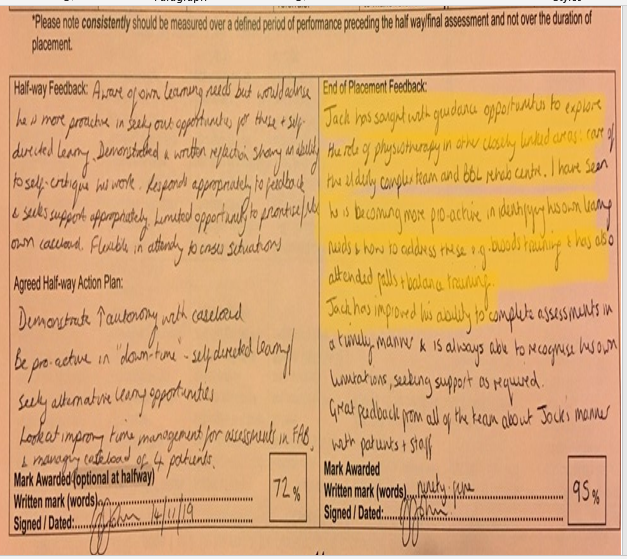 *Please note consistently should be measured over a defined period of performance preceding the half way/final assessment and not over the duration of
placement.
Half-way Feedback: Aware of own learning needs but would advise
he is more proactive in seeking out opportunities for these + self-
directed learng. Demonstrated a written reflection showing an ability
to self-critique his work. Responds appropriately to feedback
& seeks support appropriately. Limited opportunity to prioritise
own caseload. Flexible in attendg to crisis situations
Agreed Half-way Action Plan:
Demonstrate ↑ autonomy with caseload
Be pro-active in "down-time" - self directed learng/
seekg alternative learng opportunities
Look at improvg time management for assessments in FAB
& managing caseload of 4 patients.
Mark Awarded (optional at halfway)
Written mark (words)
72%
Signed / Dated: 14/11/19
End of Placement Feedback:
Jack has sought with guidance opportunities to explore
the role of physiotherapy in other closely linked areas: care of
the elderly complex team and rehab centre. I have seen
he is becoming more pro-active in identifying his own learng
needs & how to address these e.g. training & has also
attended falls + balance training.
Jack has improved his ability to complete assessments in
a timely manner & is always able to recognise his own
limitations, seeking support as required.
Great feedback from all of the team about Jack's manner
with patients + staff
Mark Awarded
Written mark (words) ninety-five
95%
Signed / Dated: